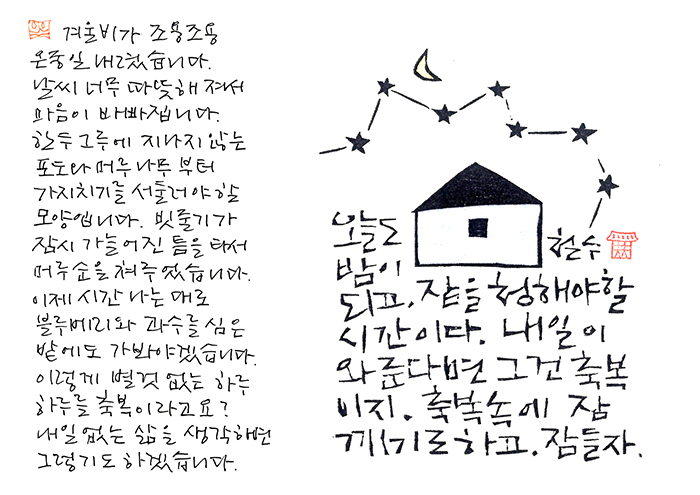 겨울비가 조용조용
온종일 내렸습니다.
날씨 너무 따뜻해져서
마음이 바빠집니다.
한두 그루에 지나지 않는
포도와 머루나무부터
가지치기를 서둘러야 할
모양입니다. 빗줄기가
잠시 가늘어진 틈을 타서
머루 순을 쳐주었습니다.
이제 시간 나는 대로
블루베리와 과수를 심은
밭에도 가봐야겠습니다.
이렇게 별것 없는 하루
하루를 축복이라고요?
내일 없는 삶을 생각하면
그렇기도 하겠습니다.
오늘도
밤이
되고, 잠을 청해야 할
시간이다. 내일이
와준다면 그건 축복
이지. 축복속에 잠
깨기로 하고. 잠들자.
철수